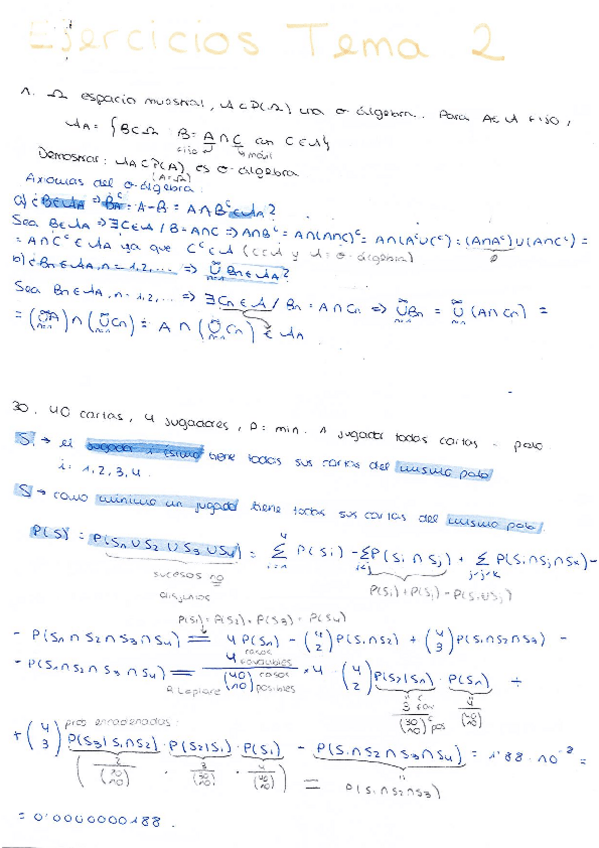 Ejercicios Tema 2
1. Ω espacio muestral, 𝒜⊂P(Ω) una σ-álgebra. Para A∈𝒜 fijo,
𝒜A = {B⊂Ω B=A∩C con C∈𝒜}
fijo móvil
Demostrar: 𝒜A⊂P(A) es σ-álgebra
(A=Ω)
Axiomas del σ-álgebra:
a) ¿B∈𝒜A ⇒ B_A^c = A-B = A∩B^c ∈𝒜A?
Sea B∈𝒜A ⇒ ∃C∈𝒜 / B=A∩C ⇒ A∩B^c = A∩(A∩C)^c = A∩(A^c∪C^c) = (A∩A^c)∪(A∩C^c) =
= A∩C^c ∈ 𝒜A ya que C^c∈𝒜 (C∈𝒜 y 𝒜=σ-álgebra)
b) ¿Bn∈𝒜A, n=1,2,... ⇒ ∪Bn∈𝒜A?
Sea Bn∈𝒜A, n=1,2,... ⇒ ∃Cn∈𝒜 / Bn=A∩Cn ⇒ ∪Bn = ∪(A∩Cn) =
= (∪A)∩(∪Cn) = A∩(∪Cn) ∈ 𝒜A
30. 40 cartas, 4 jugadores, P= min. 1 jugador todas cartas = palo.
Si → el jugador i-ésimo tiene todas sus cartas del mismo palo
i=1,2,3,4.
S → como mínimo un jugador tiene todas sus cartas del mismo palo.
P(S) = P(S1∪S2∪S3∪S4) = Σ P(Si) - ΣP(Si∩Sj) + Σ P(Si∩Sj∩Sk) -
sucesos no disjuntos
P(Si)+P(Sj)-P(Si∪Sj)
P(S1)=P(S2)=P(S3)=P(S4)
- P(S1∩S2∩S3∩S4) = 4P(S1) - (4 2)P(S1∩S2) + (4 3)P(S1∩S2∩S3) -
- P(S1∩S2∩S3∩S4) = 4 casos favorables / (40 10) casos posibles ×4 - (4 2)P(S2|S1) · P(S1) +
A Laplace
3 fav / (30 10) pos 4 / (40 10)
prob encadenadas
+ (4 3) P(S3|S1∩S2) · P(S2|S1) · P(S1) - P(S1∩S2∩S3∩S4) = 1'88·10^-8 =
(2/(20 10) · 3/(30 10) · 4/(40 10)) = P(S1∩S2∩S3)
= 0'0000000188.